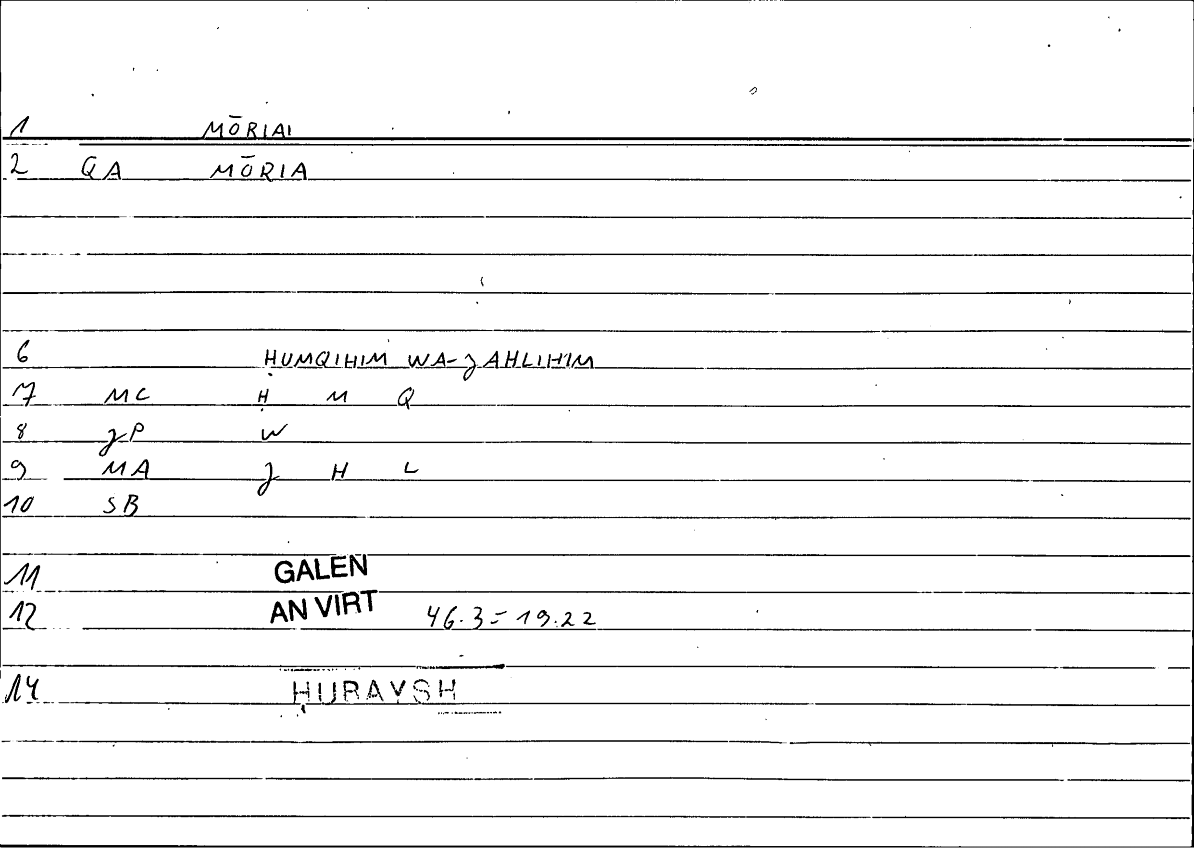 1 MŌRIAI
2 QA MŌRIA
6 ḤUMQIHIM WA-ʒAHLIHIM
7 MC Ḥ M Q
8 ʒP W
9 MA ʒ H L
10 SB
11 GALEN
12 AN VIRT 46.3 = 19.22
14 ḤURAYSH